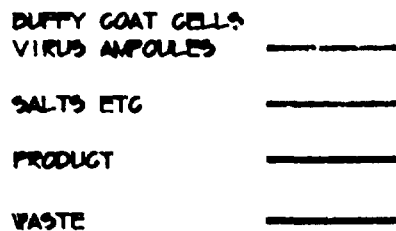 BUFFY COAT CELLS
VIRUS AMPOULES
SALTS ETC
PRODUCT
WASTE